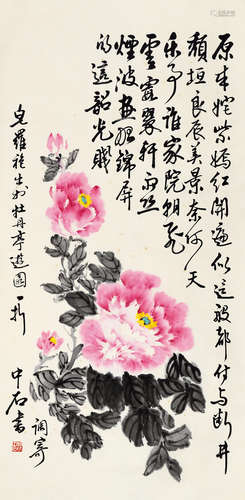 原来姹紫嫣红开遍似这般都付与断井
颓垣良辰美景奈何天
乐事谁家院朝飞
云窗翠轩雨丝
烟波画船锦屏
的这韶光贱
皂罗袍生于牡丹亭游园一折
调寄
中石书